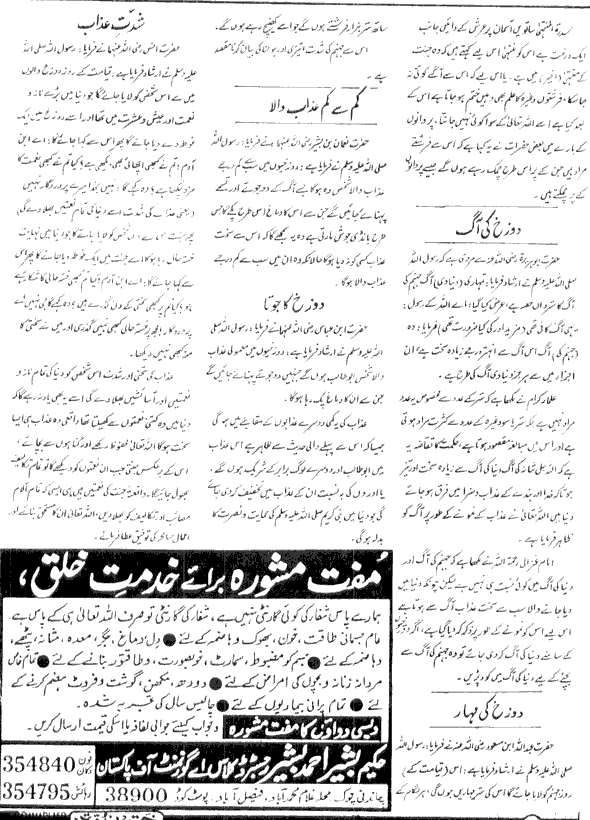 سدرة المنتہیٰ ساتویں آسمان پر عرش کے دائیں جانب
ایک درخت ہے اس کو منتہیٰ اس لیے کہتے ہیں کہ وہ جنت
کے منتہیٰ میں ہے۔ یا اس لیے کہ اس سے آگے کوئی نہ
جا سکا، فرشتوں وغیرہ کا علم بھی وہیں ختم ہو جاتا ہے اس کے
بعد کیا ہے اسے اللہ تعالیٰ کے سوا کوئی نہیں جانتا۔ پروانوں
کے بارے میں بعض حضرات نے یہ کہا ہے کہ اس سے فرشتے
مراد ہیں جن کے پر اس طرح چمک رہے ہوں گے جیسے پروانوں
کے پر چمکتے ہیں۔
دوزخ کی آگ
حضرت ابو ہریرۃ رضی اللہ عنہ سے مروی ہے کہ رسول اللہ
صلی اللہ علیہ وسلم نے ارشاد فرمایا: تمہاری (دنیاوی) آگ جہنم کی
آگ کا سترواں حصہ ہے، عرض کیا گیا: اے اللہ کے رسول:
یہی آگ کافی تھی (مزید اور کی کیا ضرورت تھی) فرمایا: وہ
(جہنم کی) آگ اس آگ سے انہتر درجے زیادہ سخت ہے، ان
اجزا میں سے ہر جز دنیاوی آگ کی طرح ہے۔
علماء کرام نے لکھا ہے کہ ستر کے عدد سے مخصوص یہ عدد
مراد نہیں ہے بلکہ ستر یا سو وغیرہ کے عدد سے کثرت مراد ہوتی
ہے اور اس میں مبالغہ مقصود ہوتا ہے، حکمت کا تقاضہ یہ
ہے کہ اللہ جل شانہ کی آگ دنیا کی آگ سے زیادہ سخت اور تیز
ہو تاکہ خدا اور بندے کے عذاب و سزا میں فرق ہو جائے
دنیا میں اللہ تعالیٰ نے عذاب کے نمونے کے طور پر آگ کو
ظاہر فرمایا ہے۔
امام غزالی رحمۃ اللہ نے لکھا ہے کہ جہنم کی آگ اور
دنیا کی آگ میں کوئی نسبت ہی نہیں ہے لیکن چونکہ دنیا میں
دیا جانے والا سب سے سخت عذاب آگ سے ہوتا ہے
اس لیے اس کو نمونے کے طور پر ذکر کر دیا گیا ہے، اگر دوزخیوں
کے سامنے دنیا کی آگ کر دی جائے تو وہ جہنم کی آگ سے
بچنے کے لیے دنیا کی آگ میں کود پڑیں۔
دوزخ کی مہار
حضرت عبداللہ ابن مسعود رضی اللہ عنہ نے فرمایا: رسول اللہ
صلی اللہ علیہ وسلم نے ارشاد فرمایا ہے: اس (قیامت کے)
روز جہنم کو لایا جائے گا اس کی ستر مہاریں ہوں گی، ہر لگام کے
ساتھ ستر ہزار فرشتے ہوں گے جو اسے کھینچ رہے ہوں گے۔
اس سے جہنم کی شدت و تیزی اور ہولناکی بیان کرنا مقصد
ہے۔
کم سے کم عذاب والا
حضرت نعمان بن بشیر رضی اللہ عنہما نے فرمایا: رسول اللہ
صلی اللہ علیہ وسلم نے فرمایا ہے: دوزخیوں میں سب سے کم درجے
عذاب والا شخص وہ ہوگا جسے آگ کے دو جوتے اور تسمے
پہنائے جائیں گے جن سے اس کا دماغ اس طرح پکے گا جس
طرح ہانڈی جوش مارتی ہے وہ یہ سمجھے گا کہ اس سے سخت
عذاب کسی کو نہ دیا ہوگا حالانکہ وہ ان میں سب سے کم درجے
عذاب والا ہوگا۔
دوزخ کا جوتا
حضرت ابن عباس رضی اللہ عنہما نے فرمایا: رسول اللہ صلی
اللہ علیہ وسلم نے ارشاد فرمایا ہے: دوزخیوں میں معمولی عذاب
والا شخص ابو طالب ہوں گے جنہیں دو جوتے پہنائے جائیں گے
جن سے ان کا دماغ پک رہا ہوگا۔
عذاب کی یہ کمی دوسرے لوگوں کے مقابلے میں ہوگی
جیسا کہ اس سے پہلے والی حدیث سے ظاہر ہے اس عذاب
میں ابو طالب اور دوسرے لوگ برابر کے شریک ہوں گے۔
یا اوروں کی بہ نسبت ان کے عذاب میں تخفیف کر دی جائے
گی جو دنیا میں نبی کریم صلی اللہ علیہ وسلم کی حمایت و نصرت کا
بدلہ ہوگی۔
شدت عذاب
حضرت انس رضی اللہ عنہ نے فرمایا: رسول اللہ صلی اللہ
علیہ وسلم نے ارشاد فرمایا ہے: قیامت کے روز دوزخ والوں
میں سے اس شخص کو لایا جائے گا جو دنیا میں بڑے ناز و
نعمت اور عیش و عشرت میں تھا اور اسے دوزخ میں ایک
غوطہ دے دیا جائے گا پھر اس سے کہا جائے گا: اے ابن
آدم! تم نے کبھی اچھائی بھی دیکھی ہے؟ کیا تم نے کبھی نعمت کا
مزہ چکھا ہے؟ وہ کہے گا: نہیں بخدا میرے پروردگار نہیں
مزہ بھی نہیں دیکھا۔
عذاب کی سختی اور شدت اس شخص کو دنیا کی تمام ناز و
نعمتیں اور آسائشیں بھلا دے گی اسے یہ بھی یاد نہ رہے گا کہ
دنیا میں وہ کتنی نعمتوں سے کھیلتا تھا واقعی وہ عذاب ہی ایسا
سخت ہوگا اللہ تعالیٰ محفوظ رکھے اور گناہوں سے بچائے،
اس کے برعکس جنتی جب ان نعمتوں کو دیکھے گا تو تمام تکالیف
بھول جائے گا۔ واقعۃ جنت کی نعمتیں ہیں ہی ایسی کہ تمام آلام
مصائب اور تکالیف کو بھلا دیں، اللہ تعالیٰ ان کا مستحق بنائے اور
اعمال صالحہ کی توفیق عطا فرمائے۔
مفت مشورہ برائے خدمت خلق،
ہمارے پاس شفا کی کوئی گارنٹی نہیں ہے، شفا کی گارنٹی تو صرف اللہ تعالیٰ ہی کے پاس ہے
عام جسمانی طاقت، خون، بھوک و ہاضمہ کے لئے ● دل، دماغ، جگر، معدہ، مثانہ، پٹھے،
دہاضمہ کے لئے ● جسم کو مضبوط، سمارٹ، خوبصورت، و طاقتور بنانے کے لئے ● تمام خاص
مردانہ زنانہ و بچوں کی امراض کے لئے ● دودھ، مکھن، گوشت و فروٹ ہضم کرنے کے
لئے ● تمام پرانی بیماریوں کے لئے ● چالیس سال کی تجربہ شدہ۔
دیسی دواؤں کا مفت مشورہ و جواب کیلئے جوابی لفافہ یا اسکی قیمت ارسال کریں۔
حکیم بشیر احمد بشیر رجسٹرڈ کلاس اے گورنمنٹ آف پاکستان
چاندنی چوک محلہ غلام محمد آباد، فیصل آباد۔ پوسٹ کوڈ 38900
فون دکان 354840
رہائش 354795